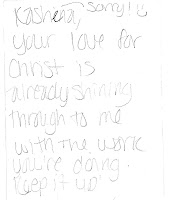 Kasheia, Sorry! :)
your love for
Christ is
already shining
through to me
with the work
you're doing.
Keep it up!